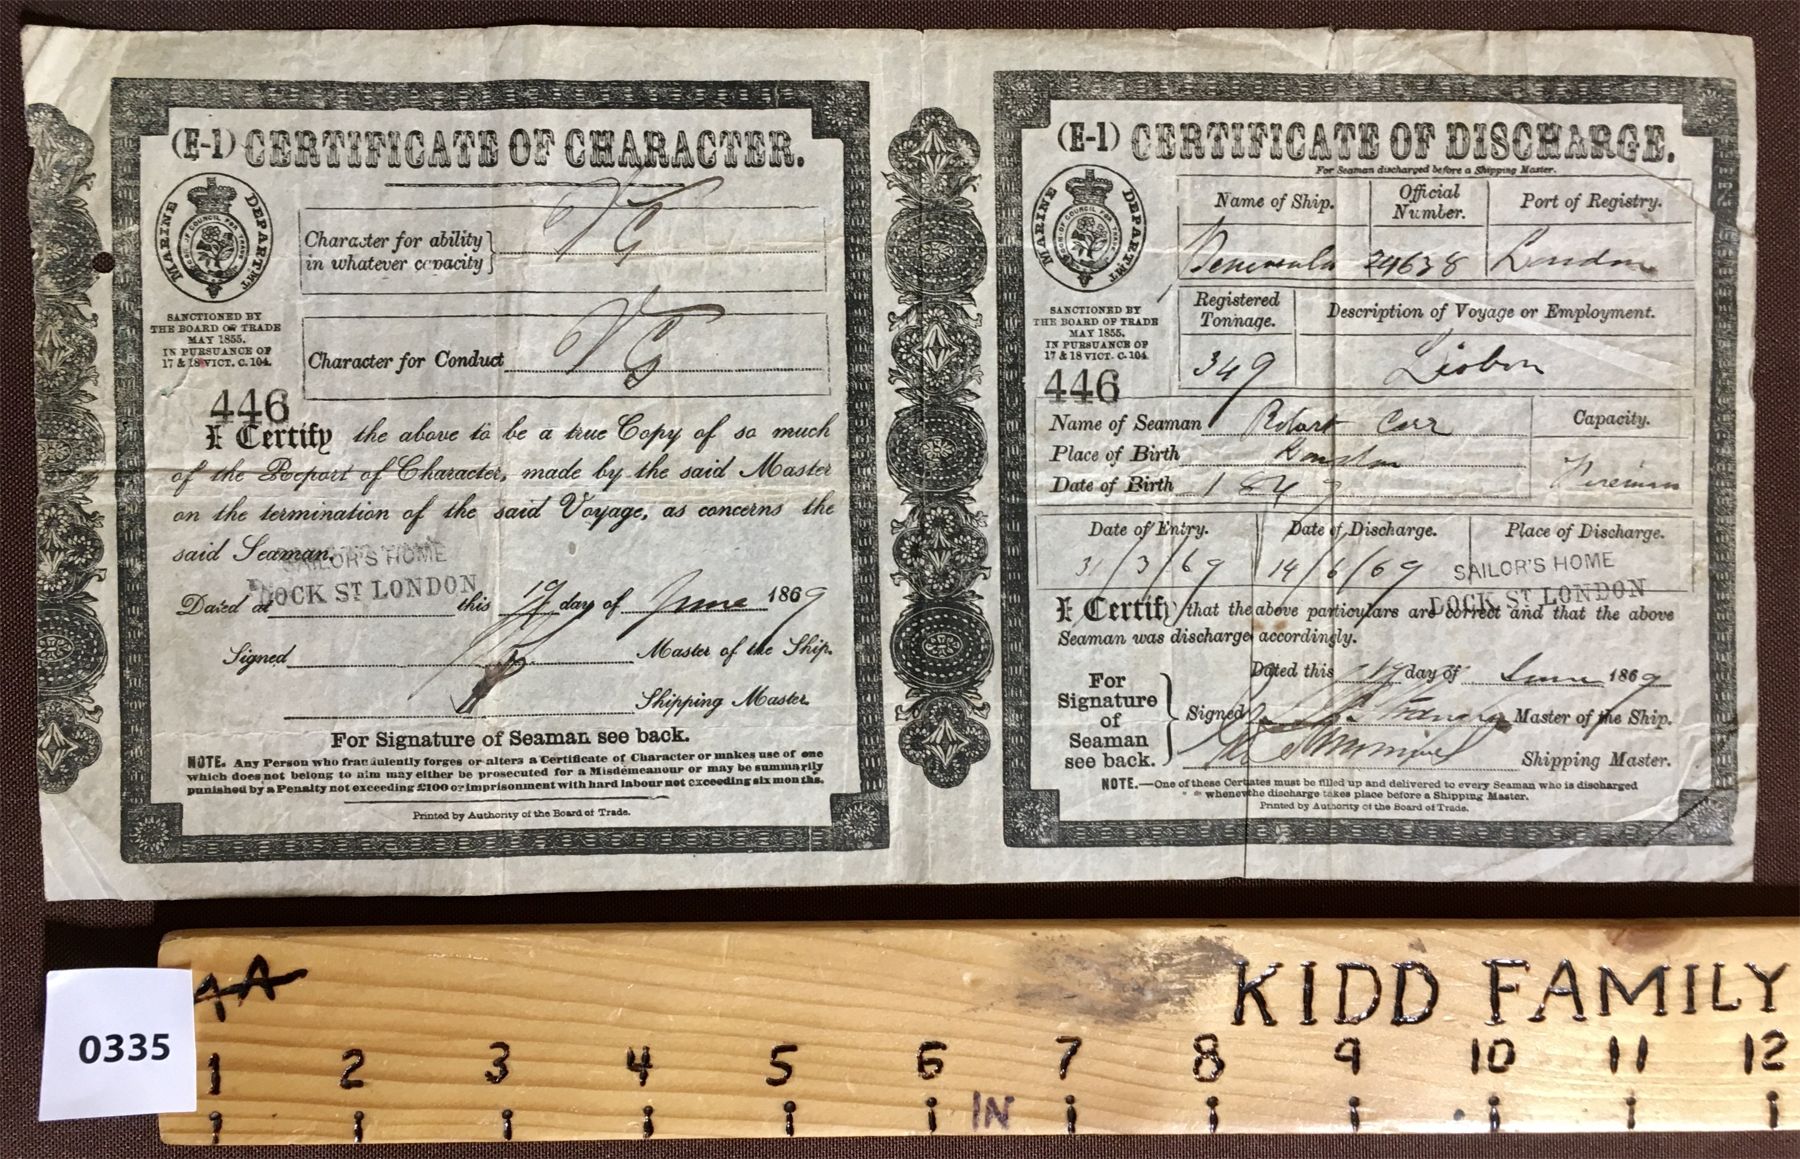 (E-1) CERTIFICATE OF CHARACTER.
MARINE DEPARTMT
SANCTIONED BY
THE BOARD OF TRADE
MAY 1855.
IN PURSUANCE OF
17 & 18 VICT. C. 104.
446
Character for ability
in whatever capacity
VG
Character for Conduct VG
I Certify the above to be a true Copy of so much
of the Report of Character, made by the said Master
on the termination of the said Voyage, as concerns the
said Seaman.
SAILOR'S HOME
DOCK ST LONDON
Dated at this 19 day of June 1869
Signed Master of the Ship.
Shipping Master.
For Signature of Seaman see back.
NOTE. Any Person who fraudulently forges or alters a Certificate of Character or makes use of one
which does not belong to him may either be prosecuted for a Misdemeanour or may be summarily
punished by a Penalty not exceeding £100 or Imprisonment with hard labour not exceeding six months.
Printed by Authority of the Board of Trade.
(E-1) CERTIFICATE OF DISCHARGE.
For Seaman discharged before a Shipping Master.
MARINE DEPARTMT
SANCTIONED BY
THE BOARD OF TRADE
MAY 1855.
IN PURSUANCE OF
17 & 18 VICT. C. 104.
446
Name of Ship. Official Number. Port of Registry.
Peninsula 24638 London
Registered Tonnage. Description of Voyage or Employment.
349 Lisbon
Name of Seaman Robert Carr Capacity.
Place of Birth Fireman
Date of Birth 184
Date of Entry. Date of Discharge. Place of Discharge.
31/3/69 14/6/69 SAILOR'S HOME
DOCK ST LONDON
I Certify that the above particulars are correct and that the above
Seaman was discharged accordingly.
Dated this 19 day of June 1869
For
Signature
of
Seaman
see back.
Signed Master of the Ship.
Shipping Master.
NOTE.—One of these Certiates must be filled up and delivered to every Seaman who is discharged
whenevthe discharge takes place before a Shipping Master.
Printed by Authority of the Board of Trade.
0335
AA
KIDD FAMILY
1 2 3 4 5 6 7 8 9 10 11 12
IN